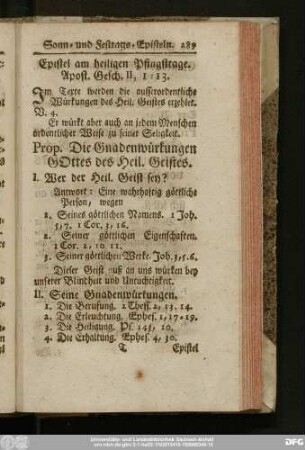 Sonn- und Festtags-Episteln. 289
Epistel am heiligen Pfingsttage.
Apost. Gesch. II, 1-13.
Im Texte werden die ausserordentliche
Würkungen des Heil. Geistes erzehlet.
V. 4.
Er würkt aber auch an jedem Menschen
ordentlicher Weise zu seiner Seligkeit.
Prop. Die Gnadenwürkungen
GOttes des Heil. Geistes.
I. Wer der Heil. Geist sey?
Antwort: Eine wahrhaftig göttliche
Person, wegen
1. Seines göttlichen Namens. 1 Joh.
5, 7. 1 Cor. 3, 16.
2. Seiner göttlichen Eigenschaften.
1 Cor. 2, 10. 11.
3. Seiner göttlichen Werke. Joh. 3, 5. 6.
Dieser Geist muß an uns würken bey
unserer Blindheit und Untüchtigkeit.
II. Seine Gnadenwürkungen.
1. Die Berufung. 2 Thess. 2, 13. 14.
2. Die Erleuchtung. Ephes. 1, 17-19.
3. Die Heiligung. Ps. 143, 10.
4. Die Erhaltung. Ephes. 4, 30.
T Epistel
Universitäts- und Landesbibliothek Sachsen-Anhalt
DFG